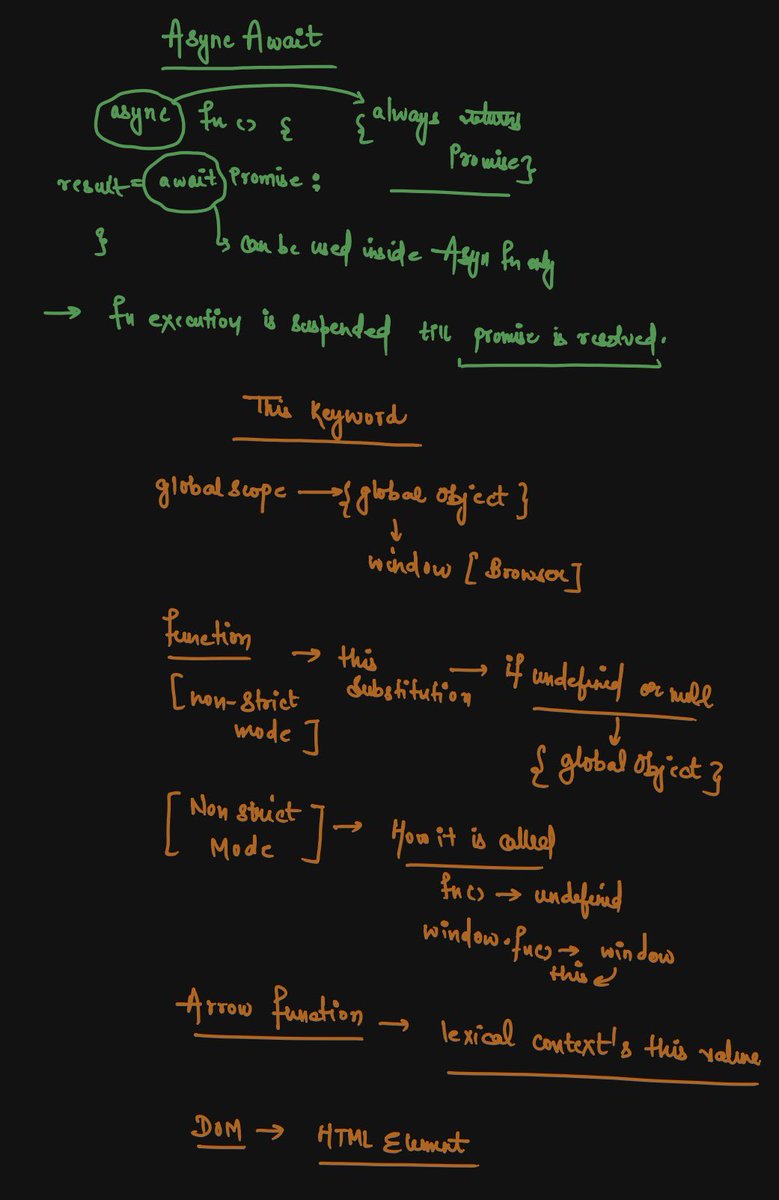 Async Await
async fn () { {always returns
Promise}
result = await Promise ;
}
↳ can be used inside Asyn fn only
→ fn execution is suspended till promise is resolved.
This Keyword
global scope → { global object }
↓
window [ Browser ]
function → this substitution → if undefined or null
[ non-strict mode ]
↓
{ global Object }
[ Non strict Mode ] → How it is called
fn() → undefined
window.fn() → window
this
Arrow function → lexical context's this value
DOM → HTML Element